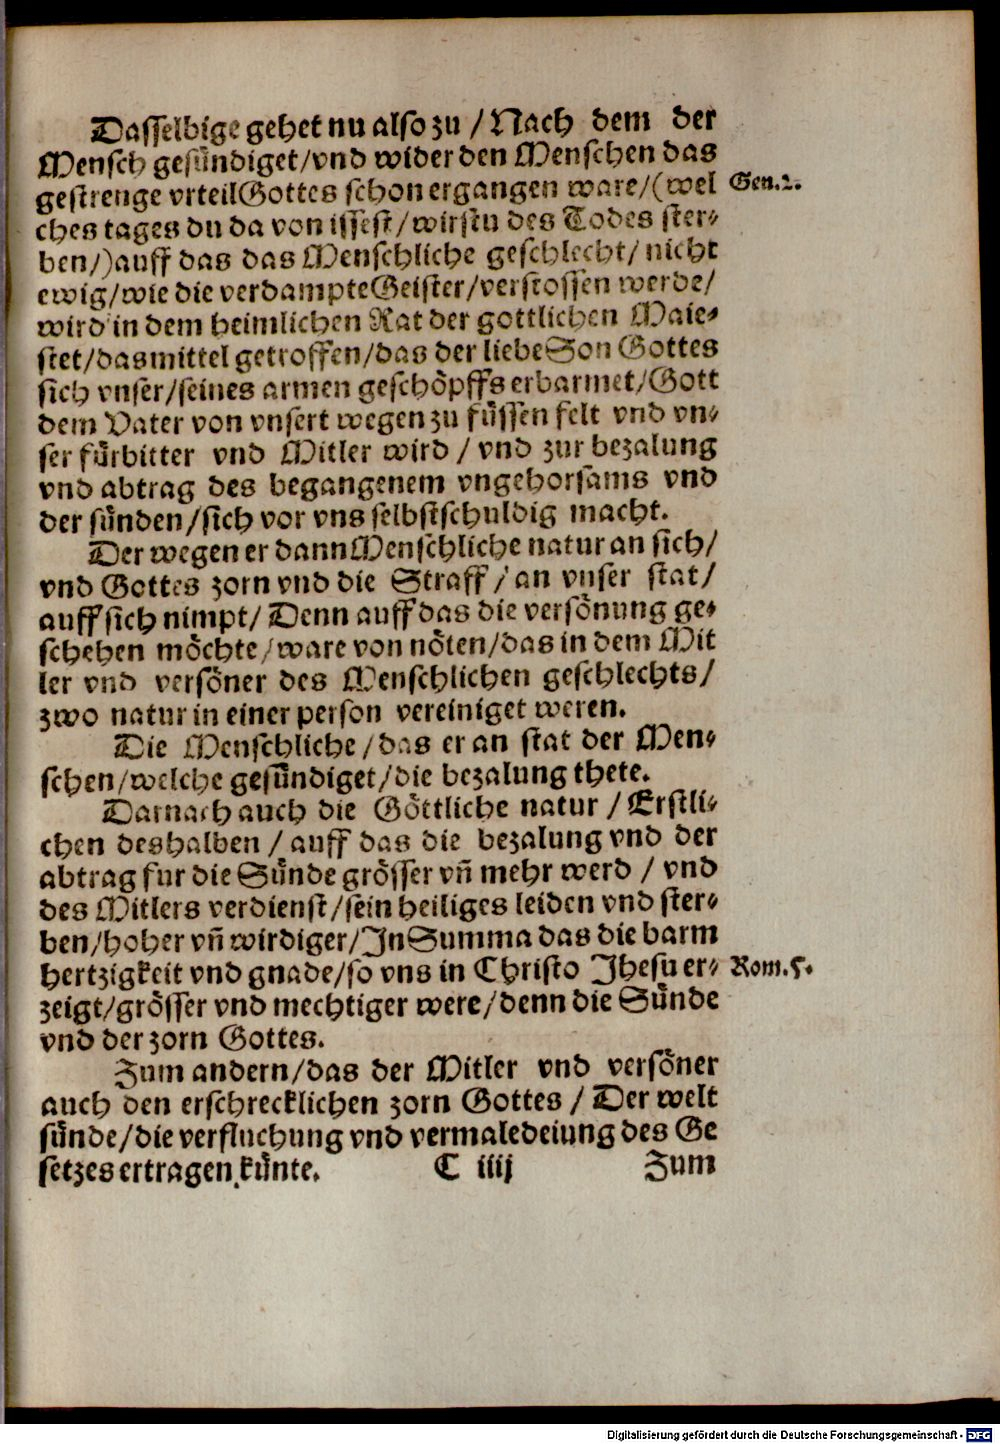 Dasselbige gehet nu also zu / Nach dem der
Mensch gesündiget/vnd wider den Menschen das
gestrenge vrteil Gottes schon ergangen ware/(wel
Gen.2.
ches tages du da von issest/wirstu des Todes ster-
ben/)auff das das Menschliche geschlecht/nicht
ewig/wie die verdampte Geister/verstossen werde/
wird in dem heimlichen Rat der gottlichen Maie-
stet/das mittel getroffen/das der liebe Son Gottes
sich vnser/seines armen geschöpffs erbarmet/Gott
dem Vater von vnsert wegen zu füssen felt vnd vn-
ser fürbitter vnd Mitler wird / vnd zur bezalung
vnd abtrag des begangenem vngehorsams vnd
der sünden/sich vor vns selbst schuldig macht.
Der wegen er dann Menschliche natur an sich/
vnd Gottes zorn vnd die Straff / an vnser stat/
auff sich nimpt/ Denn auff das die versönung ge-
schehen möchte/ware von nöten/das in dem Mit
ler vnd versöner des Menschlichen geschlechts/
zwo natur in einer person vereiniget weren.
Die Menschliche/das er an stat der Men-
schen/welche gesündiget/die bezalung thete.
Darnach auch die Göttliche natur / Erstli-
chen deshalben / auff das die bezalung vnd der
abtrag fur die Sünde grösser vñ mehr werd / vnd
des Mitlers verdienst/sein heiliges leiden vnd ster-
ben/hoher vñ wirdiger/In Summa das die barm
hertzigkeit vnd gnade/so vns in Christo Jhesu er-
Rom.5.
zeigt/grösser vnd mechtiger were/denn die Sünde
vnd der zorn Gottes.
Zum andern/das der Mitler vnd versöner
auch den erschrecklichen zorn Gottes / Der welt
sünde/die verfluchung vnd vermaledeiung des Ge
setzes ertragen künte.
C iiij
Zum
Digitalisierung gefördert durch die Deutsche Forschungsgemeinschaft - DFG